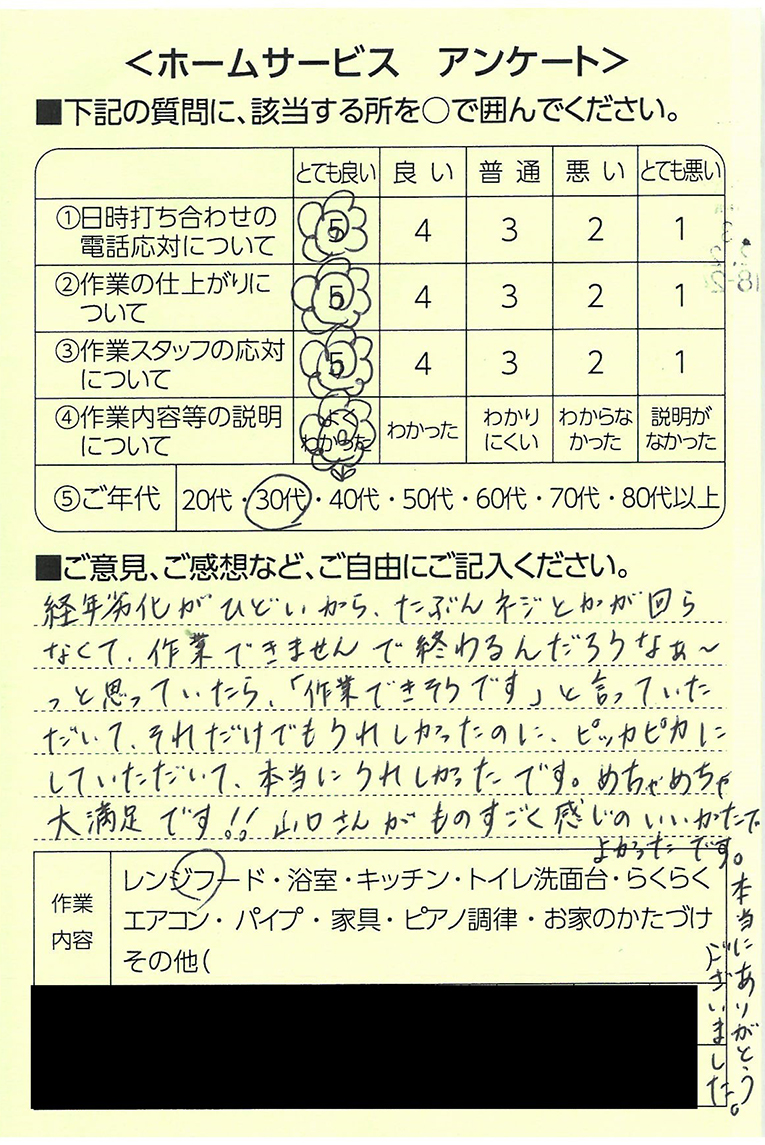 <ホームサービス　アンケート>
■下記の質問に、該当する所を○で囲んでください。
とても良い 良い 普通 悪い とても悪い
①日時打ち合わせの
電話応対について 5 4 3 2 1
②作業の仕上がりに
ついて 5 4 3 2 1
③作業スタッフの応対
について 5 4 3 2 1
④作業内容等の説明
について よく
わかった わかった わかり
にくい わからな
かった 説明が
なかった
⑤ご年代 20代・30代・40代・50代・60代・70代・80代以上
■ご意見、ご感想など、ご自由にご記入ください。
経年劣化がひどいから、たぶんネジとかが回ら
なくて、作業できませんで終わるんだろうなぁ〜
っと思っていたら、「作業できそうです」と言っていた
だいて、それだけでもうれしかったのに、ピッカピカに
していただいて、本当にうれしかったです。めちゃめちゃ
大満足です!! 山口さんがものすごく感じのいいかたで
よかったです。
本当にありがとう
ございました。
作業
内容
レンジフード・浴室・キッチン・トイレ洗面台・らくらく
エアコン・パイプ・家具・ピアノ調律・お家のかたづけ
その他( )